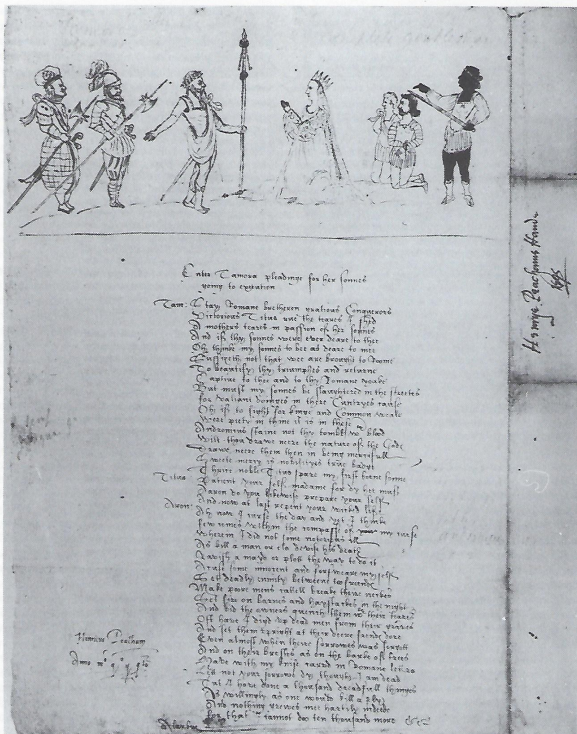 Enter Tamora pleadinge for her sonnes
going to execution
Tam: Stay Romane bretheren gratious Conquerors
Victorious Titus rue the teares I shed
A mothers teares in passion of her sonnes
And if thy sonnes were ever deare to thee
Oh thinke my sonnes to bee as deare to mee
Suffizeth not that wee are brought to Roome
To beautify thy triumphes and returne
Captive to thee and to thy Romane yoake
But must my sonnes be slaughtered in the streetes
for valiant doinges in there Cuntryes cause
Oh if to fight for kinge and Common weale
Were piety in thine it is in these
Andronicus staine not thy tombe wth blood
Wilt thou drawe neere the nature of the Godes
Drawe neere them then in being mercifull
Sweete mercy is nobilityes true badge
Thrice noble Titus spare my first borne sonne
Titus: Patient your self madame for dy hee must
Aaron do you likewise prepare your self
And now at last repent your wicked life
Aron: Ah now I curse the day and yet I thinke
few comes within the compasse of my curse
Wherein I did not some notorious ill
As kill a man or els devise his death
Ravish a mayd or plott the way to do it
Acuse some innocent and forsweare myself
Set deadly enmity betweene two freendes
Make poore mens cattell breake theire neckes
Set fire on barnes and haystackes in the night
And bid the owners quench them wth their teares
Oft have I digd up dead men from their graves
And set them upright at their deere frendes dore
Even almost when theire sorrowes was forgott
And on their brestes as on the barke of trees
Have with my knife carvd in Romane letters
Lett not your sorrowe dy though I am dead
Tut I have done a thousand dreadfull thinges
As willingly as one would kill a fly
And nothing greives mee hartily indeede
for that I cannot doo ten thousand more &c
Alarbus
Henricus Peacham
Anno mo qo g qto
Henrye Peachams Hande
1595